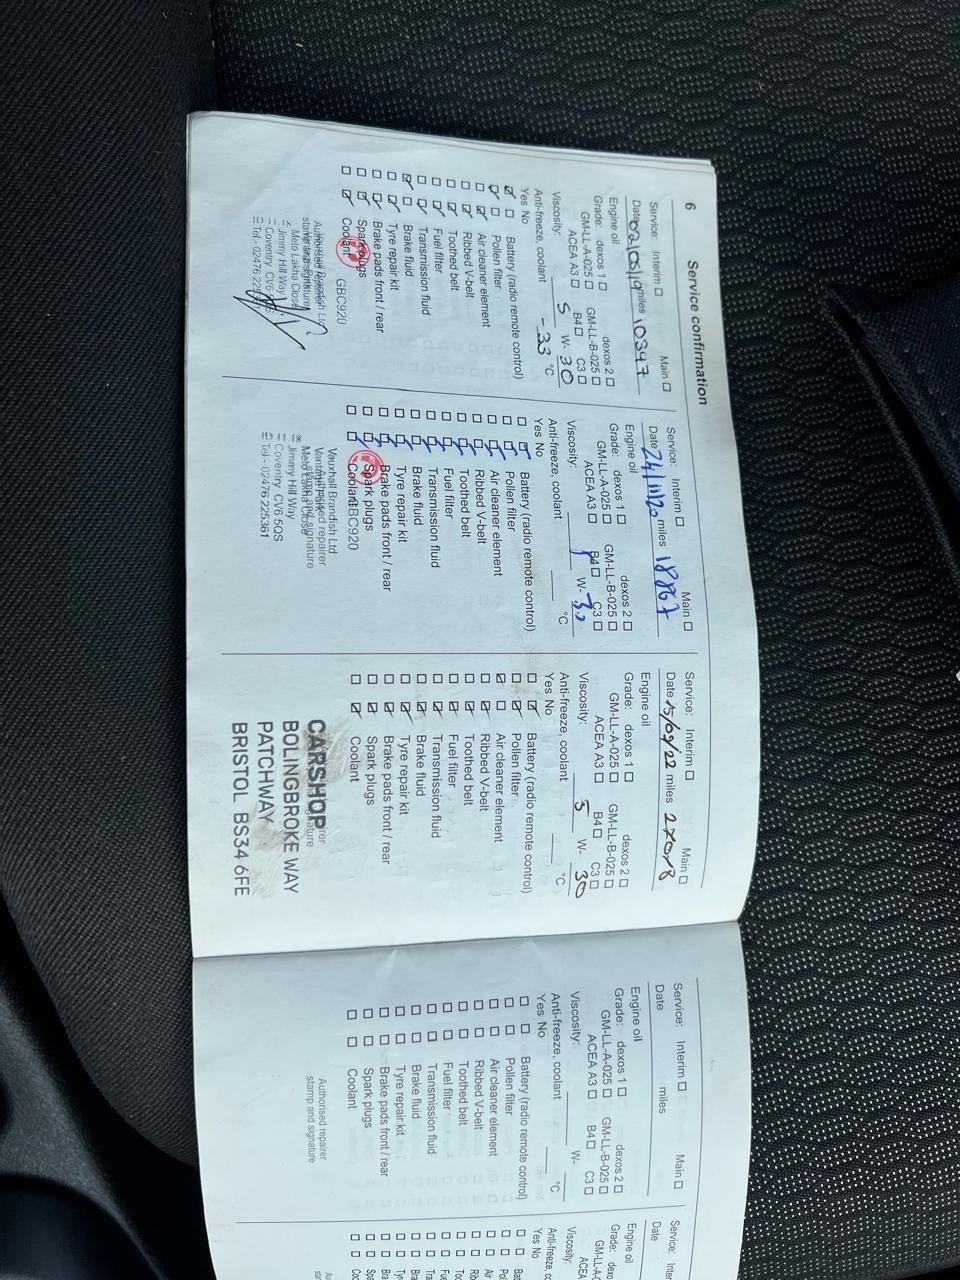 6
Service confirmation
Service: Interim ☐ Main ☐
Date 02/05/19 miles 10347
Engine oil
Grade: dexos 1 ☐ dexos 2 ☐
GM-LL-A-025 ☐ GM-LL-B-025 ☐
ACEA A3 ☐ B4 ☐ C3 ☐
Viscosity: 5 W- 30
Anti-freeze, coolant -33 °C
Yes No
☑ ☐ Battery (radio remote control)
☑ ☐ Pollen filter
☐ ☑ Air cleaner element
☐ ☑ Ribbed V-belt
☐ ☑ Toothed belt
☐ ☑ Fuel filter
☐ ☑ Transmission fluid
☑ ☐ Brake fluid
☐ ☑ Tyre repair kit
☐ ☑ Brake pads front / rear
☐ ☑ Spark plugs
☐ ☑ Coolant
GBC920
Vauxhall Brandish Ltd
Authorised repairer
stamp and signature
Meto Lakha Close
Jimmy Hill Way
Coventry CV6
Tel - 02476 225
Service: Interim ☐ Main ☐
Date 24/11/20 miles 18867
Engine oil
Grade: dexos 1 ☐ dexos 2 ☐
GM-LL-A-025 ☐ GM-LL-B-025 ☐
ACEA A3 ☐ B4 ☐ C3 ☐
Viscosity: W- 30
Anti-freeze, coolant °C
Yes No
☐ ☑ Battery (radio remote control)
☐ ☑ Pollen filter
☐ ☑ Air cleaner element
☐ ☑ Ribbed V-belt
☐ ☑ Toothed belt
☐ ☑ Fuel filter
☐ ☑ Transmission fluid
☐ ☑ Brake fluid
☐ ☑ Tyre repair kit
☐ ☑ Brake pads front / rear
☐ ☑ Spark plugs
☐ ☑ Coolant
GBC920
Vauxhall Brandish Ltd
Authorised repairer
stamp and signature
Meto Lakha Close
Jimmy Hill Way
Coventry CV6 5QS
Tel - 02476 225361
Service: Interim ☐ Main ☐
Date 15/09/22 miles 27078
Engine oil
Grade: dexos 1 ☐ dexos 2 ☐
GM-LL-A-025 ☐ GM-LL-B-025 ☐
ACEA A3 ☐ B4 ☐ C3 ☐
Viscosity: 5 W- 30
Anti-freeze, coolant °C
Yes No
☐ ☑ Battery (radio remote control)
☐ ☑ Pollen filter
☑ ☐ Air cleaner element
☐ ☑ Ribbed V-belt
☐ ☑ Toothed belt
☐ ☑ Fuel filter
☐ ☑ Transmission fluid
☐ ☑ Brake fluid
☐ ☑ Tyre repair kit
☐ ☑ Brake pads front / rear
☐ ☑ Spark plugs
☐ ☑ Coolant
CARSHOP
BOLINGBROKE WAY
PATCHWAY
BRISTOL BS34 6FE
Service: Interim ☐ Main ☐
Date miles
Engine oil
Grade: dexos 1 ☐ dexos 2 ☐
GM-LL-A-025 ☐ GM-LL-B-025 ☐
ACEA A3 ☐ B4 ☐ C3 ☐
Viscosity: W-
Anti-freeze, coolant °C
Yes No
☐ ☐ Battery (radio remote control)
☐ ☐ Pollen filter
☐ ☐ Air cleaner element
☐ ☐ Ribbed V-belt
☐ ☐ Toothed belt
☐ ☐ Fuel filter
☐ ☐ Transmission fluid
☐ ☐ Brake fluid
☐ ☐ Tyre repair kit
☐ ☐ Brake pads front / rear
☐ ☐ Spark plugs
☐ ☐ Coolant
Authorised repairer
stamp and signature
Service: Inter
Date
Engine oil
Grade: dexo
GM-LL-A-0
ACEA
Viscosity:
Anti-freeze, co
Yes No
☐ ☐ Bat
☐ ☐ Pol
☐ ☐ Air
☐ ☐ Rib
☐ ☐ Too
☐ ☐ Fue
☐ ☐ Tra
☐ ☐ Bra
☐ ☐ Tyr
☐ ☐ Bra
☐ ☐ Spa
☐ ☐ Coo